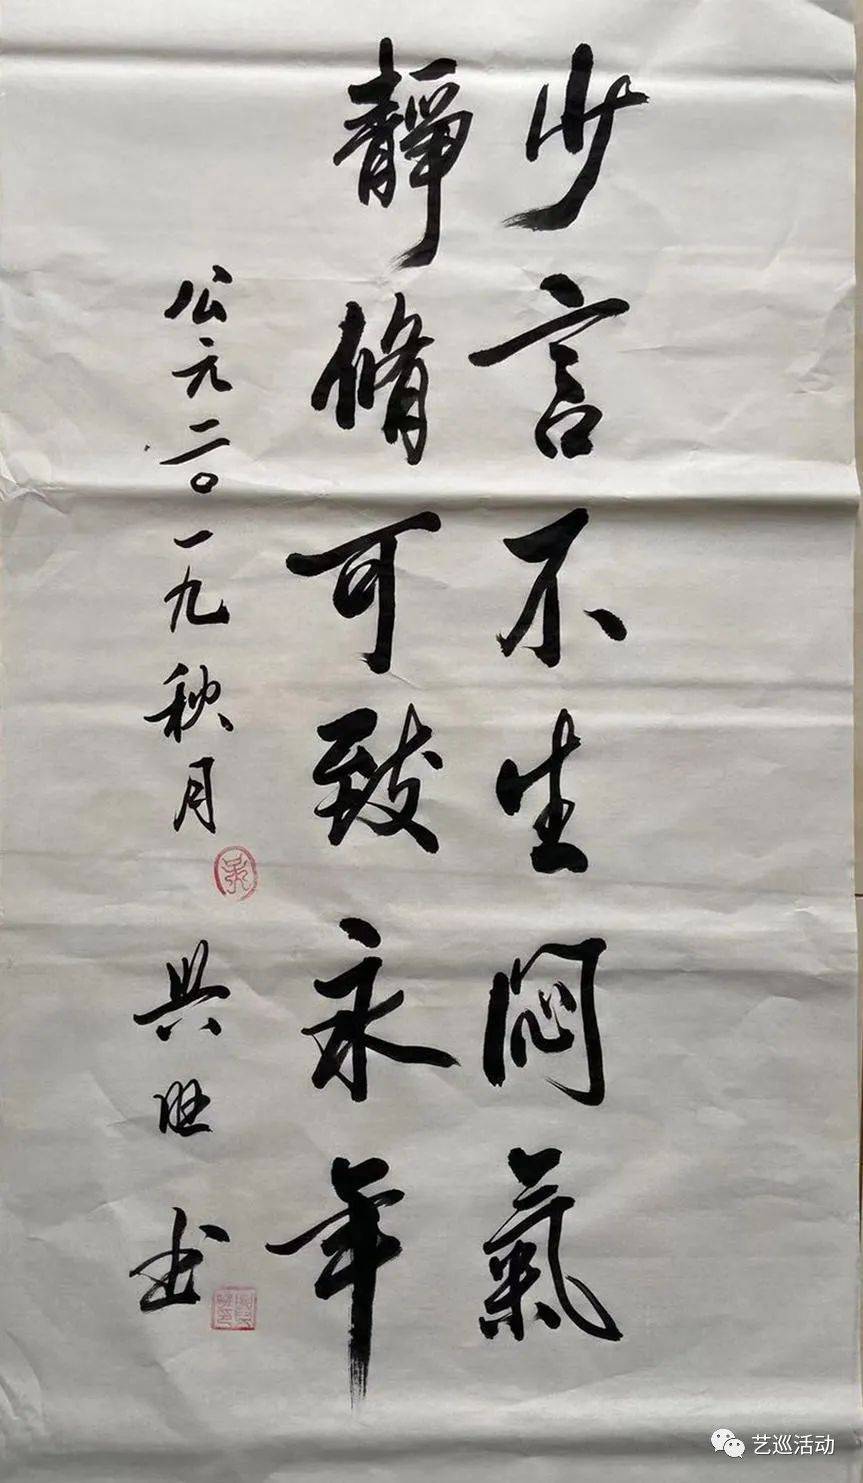 少言不生闷氣
靜脩可致永年
公元二〇一九秋月
兴旺书
艺巡活动